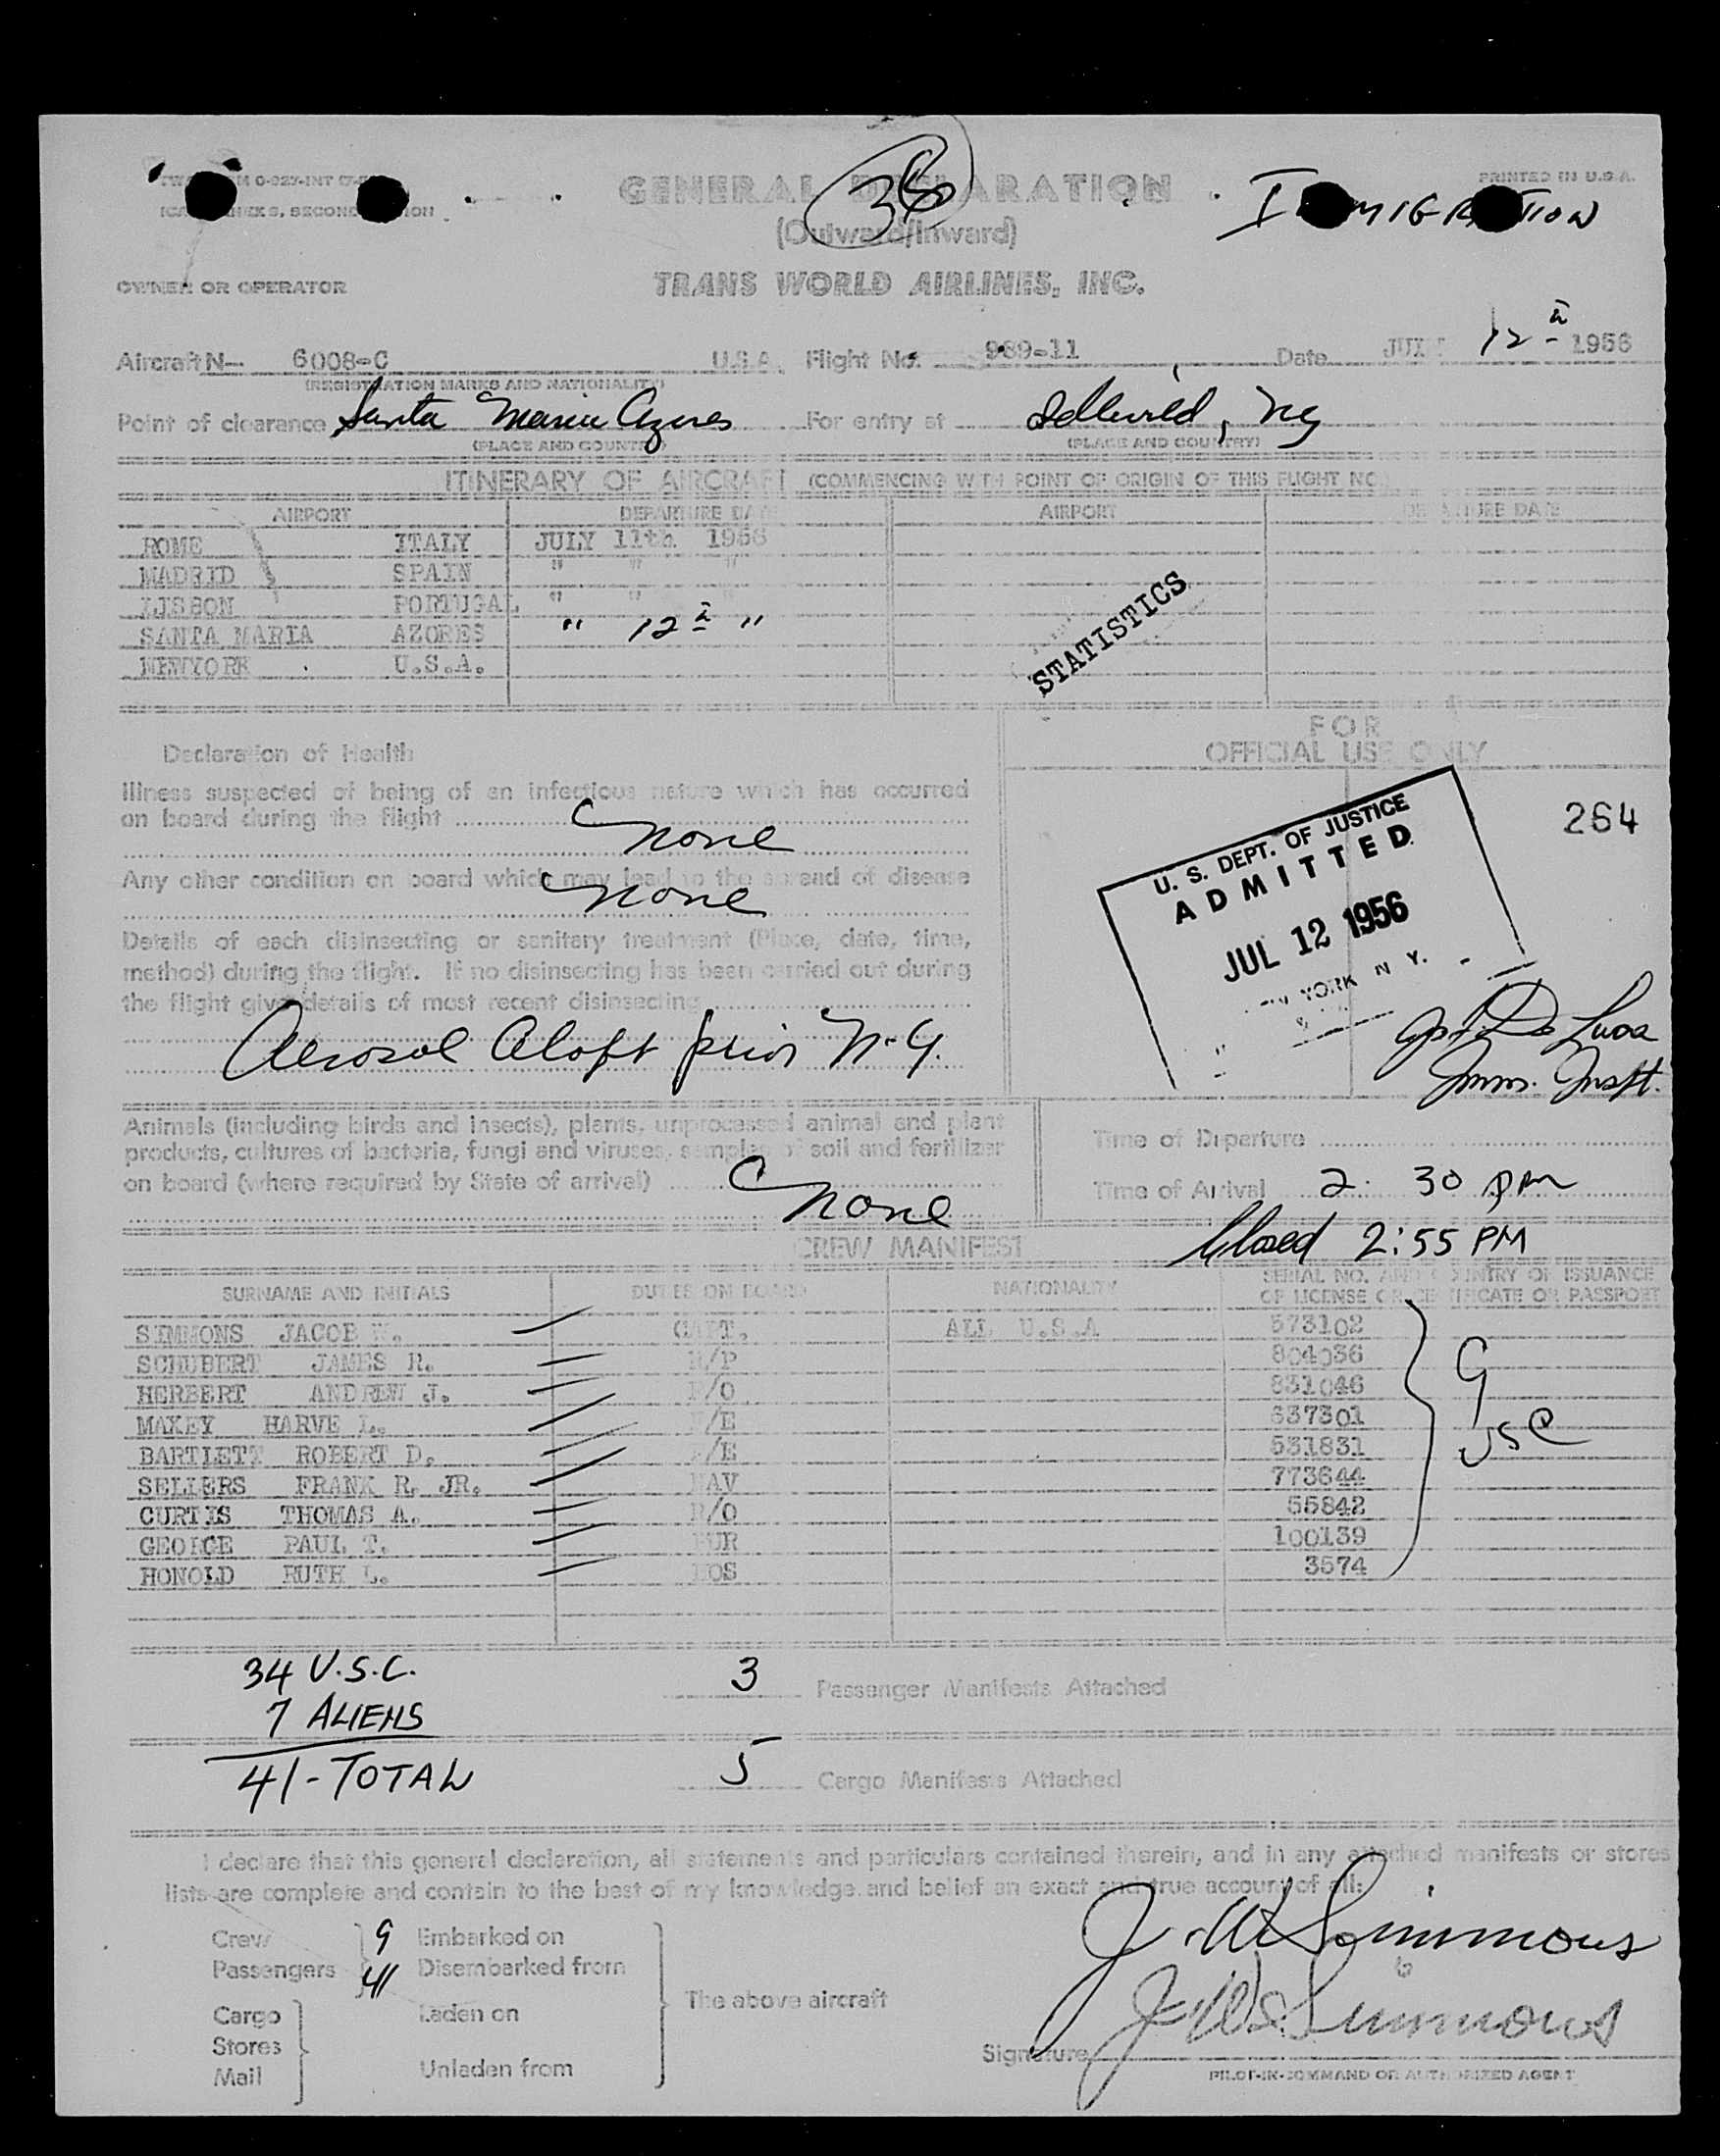 GENERAL DECLARATION
(Outward/Inward)
PRINTED IN U.S.A.
36
IMMIGRATION
OWNER OR OPERATOR
TRANS WORLD AIRLINES, INC.
Aircraft N— 6008-C U.S.A. Flight No. 989-11 Date JULY 12th 1956
(REGISTRATION MARKS AND NATIONALITY)
Point of clearance Santa Maria Azores For entry at Idlewild, NY
(PLACE AND COUNTRY) (PLACE AND COUNTRY)
ITINERARY OF AIRCRAFT (COMMENCING WITH POINT OF ORIGIN OF THIS FLIGHT NO.)
AIRPORT DEPARTURE DATE AIRPORT DEPARTURE DATE
ROME ITALY JULY 11th 1956
MADRID SPAIN " " "
LISBON PORTUGAL " " "
SANTA MARIA AZORES " 12th "
NEWYORK U.S.A.
STATISTICS
FOR
OFFICIAL USE ONLY
264
Declaration of Health
Illness suspected of being of an infectious nature which has occurred
on board during the flight
None
Any other condition on board which may lead to the spread of disease
None
Details of each disinsecting or sanitary treatment (Place, date, time,
method) during the flight. If no disinsecting has been carried out during
the flight give details of most recent disinsecting
Aerosol Aloft prior N.Y.
U. S. DEPT. OF JUSTICE
ADMITTED
JUL 12 1956
NEW YORK N Y.
Imm. Inspt.
Animals (including birds and insects), plants, unprocessed animal and plant
products, cultures of bacteria, fungi and viruses, samples of soil and fertilizer
on board (where required by State of arrival)
None
Time of Departure
Time of Arrival 2 30 pm
Closed 2:55 PM
CREW MANIFEST
SURNAME AND INITIALS DUTIES ON BOARD NATIONALITY SERIAL NO. AND COUNTRY OF ISSUANCE
OF LICENSE OR CERTIFICATE OR PASSPORT
SIMMONS JACOB W. CAPT. ALL U.S.A 573102
SCHUBERT JAMES R. R/P 804036
HERBERT ANDREW J. F/O 831046
MAXEY HARVE L. F/E 637301
BARTLETT ROBERT D. F/E 531831
SELLERS FRANK R. JR. NAV 773644
CURTIS THOMAS A. R/O 55842
GEORGE PAUL T. PUR 100139
HONOLD RUTH L. HOS 3574
9
USC
34 U.S.C.
7 ALIENS
41-TOTAL
3 Passenger Manifests Attached
5 Cargo Manifests Attached
I declare that this general declaration, all statements and particulars contained therein, and in any attached manifests or stores
lists are complete and contain to the best of my knowledge and belief an exact and true account of all:
Crew 9 Embarked on
Passengers 41 Disembarked from
Cargo Laden on
Stores
Mail Unladen from
The above aircraft
J W Simmons
J W Simmons
Signature
PILOT-IN-COMMAND OR AUTHORIZED AGENT